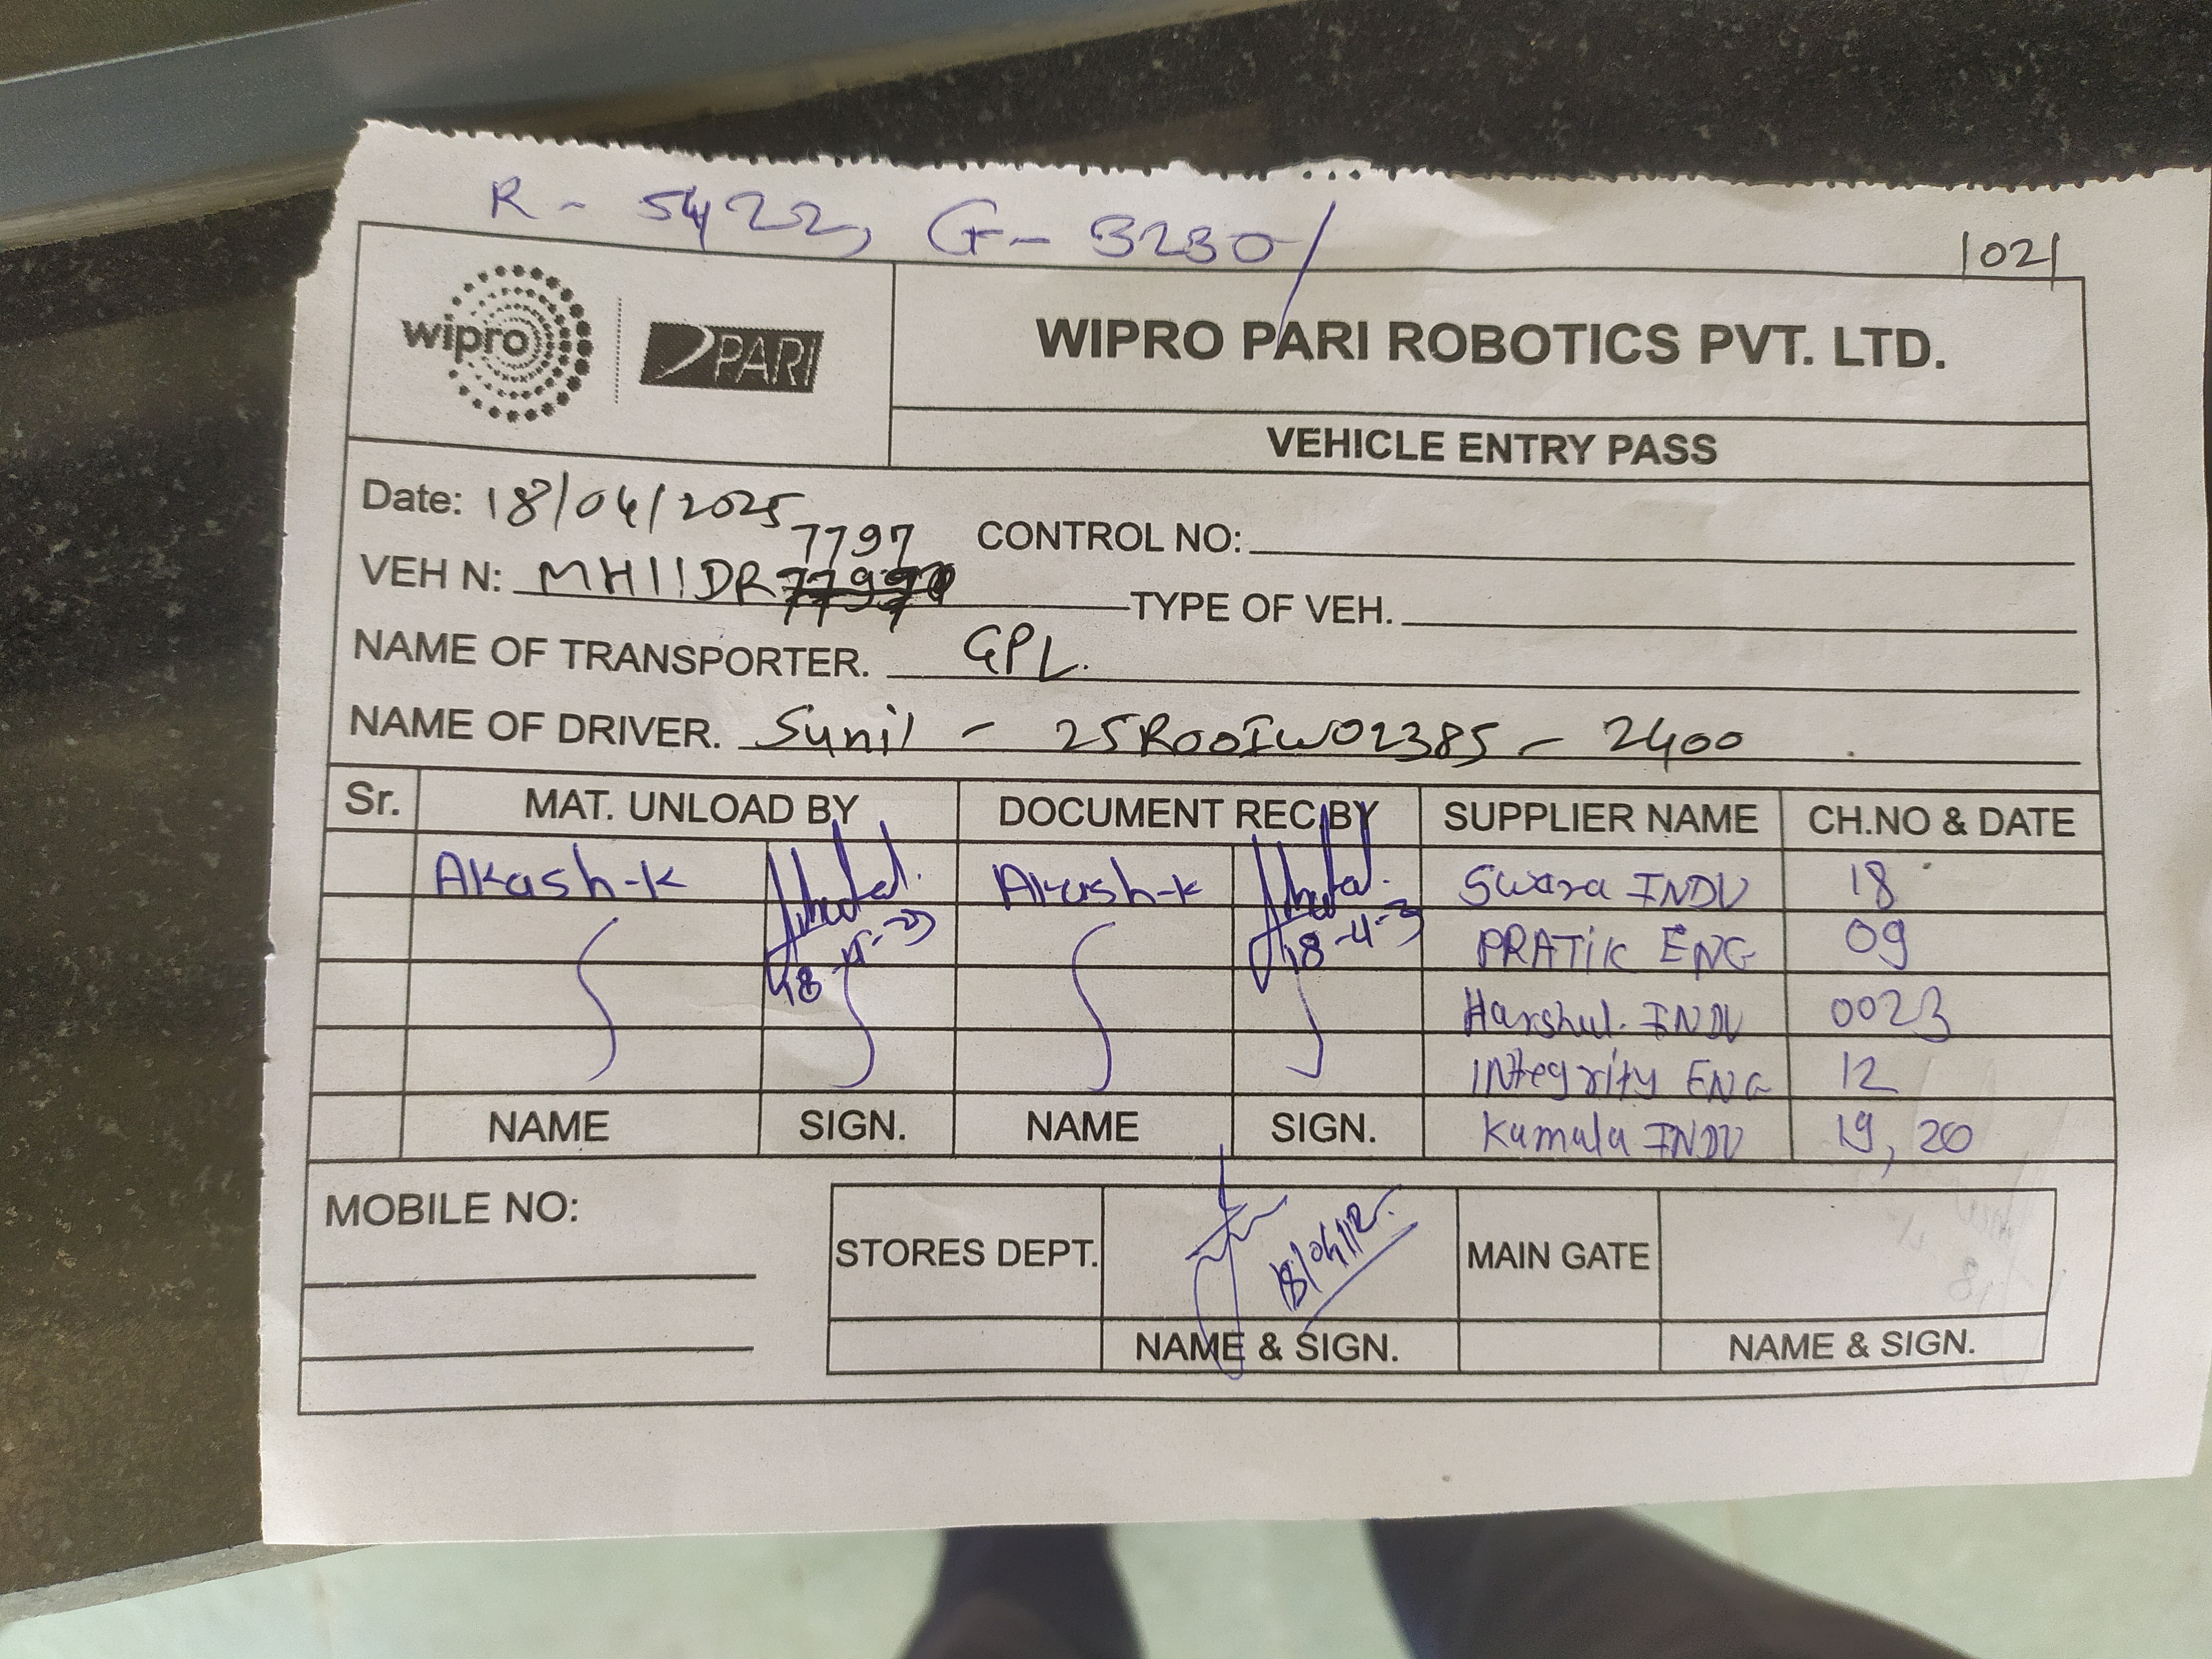 R - 5422, G - 3230/
1021
wipro PARI
WIPRO PARI ROBOTICS PVT. LTD.
VEHICLE ENTRY PASS
Date: 18/04/2025
CONTROL NO:
7797
VEH N: MH11DR
TYPE OF VEH.
NAME OF TRANSPORTER. GPL.
NAME OF DRIVER. Sunil - 25R00IW02385 - 2400
Sr. MAT. UNLOAD BY DOCUMENT REC BY SUPPLIER NAME CH.NO & DATE
Akash-K Akash-K Swara INDU 18
18-4-25 PRATIK ENG 09
Harshul. INDU 0023
INtegrity ENG 12
NAME SIGN. NAME SIGN. Kamala INDU 19, 20
MOBILE NO:
STORES DEPT. MAIN GATE
NAME & SIGN. NAME & SIGN.